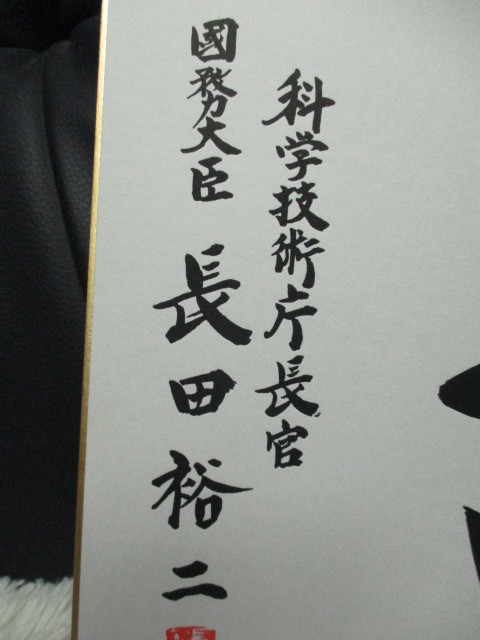 科学技術庁長官
國務大臣 長田裕二